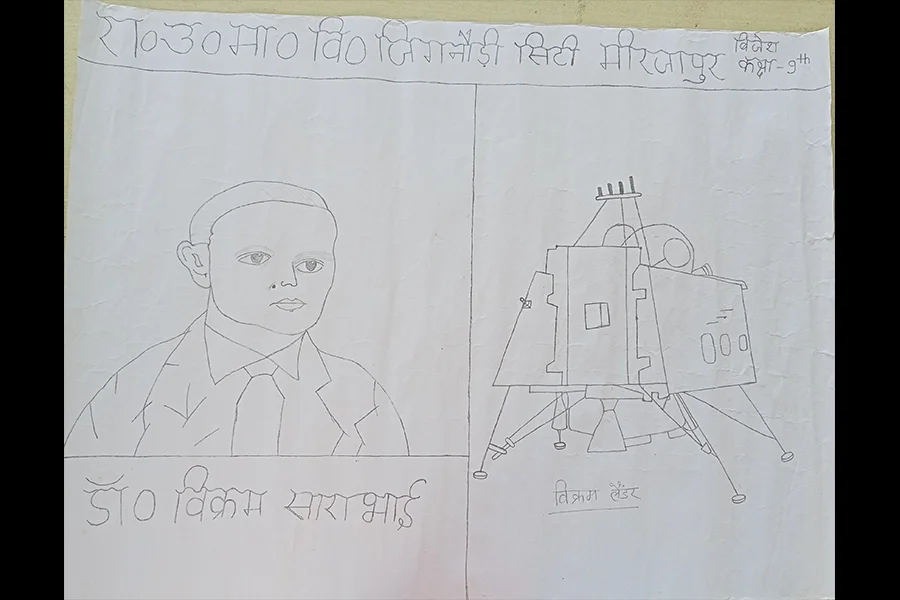 रा०उ०मा० वि० जिगनौड़ी सिटी मीरजापुर
विजेश
कक्षा-9th
डॉ० विक्रम साराभाई
विक्रम लैंडर